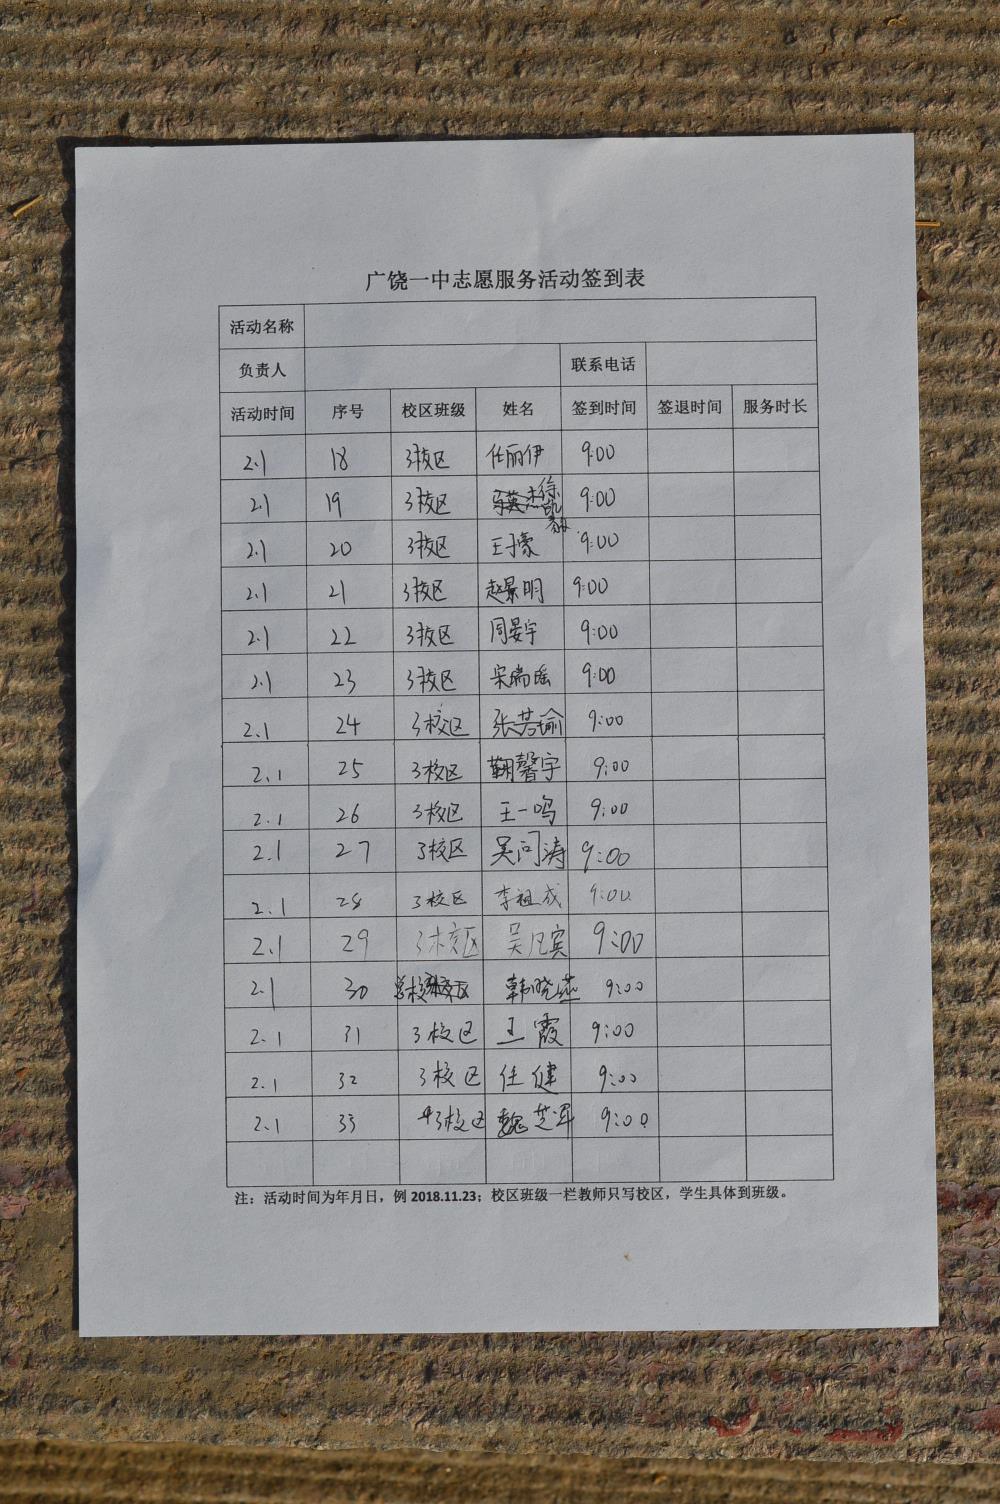 广饶一中志愿服务活动签到表
活动名称
负责人 联系电话
活动时间 序号 校区班级 姓名 签到时间 签退时间 服务时长
2.1 18 3校区 任丽伊 9:00
2.1 19 3校区 徐凯 9:00
2.1 20 3校区 王子豪 9:00
2.1 21 3校区 赵景明 9:00
2.1 22 3校区 周晏宇 9:00
2.1 23 3校区 宋尚瑶 9:00
2.1 24 3校区 张芳瑜 9:00
2.1 25 3校区 靳馨宇 9:00
2.1 26 3校区 王一鸣 9:00
2.1 27 3校区 吴问涛 9:00
2.1 28 3校区 李祖成 9:00
2.1 29 3校区 吴凡宾 9:00
2.1 30 校区 韩晓燕 9:00
2.1 31 3校区 王霞 9:00
2.1 32 3校区 任健 9:00
2.1 33 3校区 魏芝军 9:00
注：活动时间为年月日，例 2018.11.23；校区班级一栏教师只写校区，学生具体到班级。